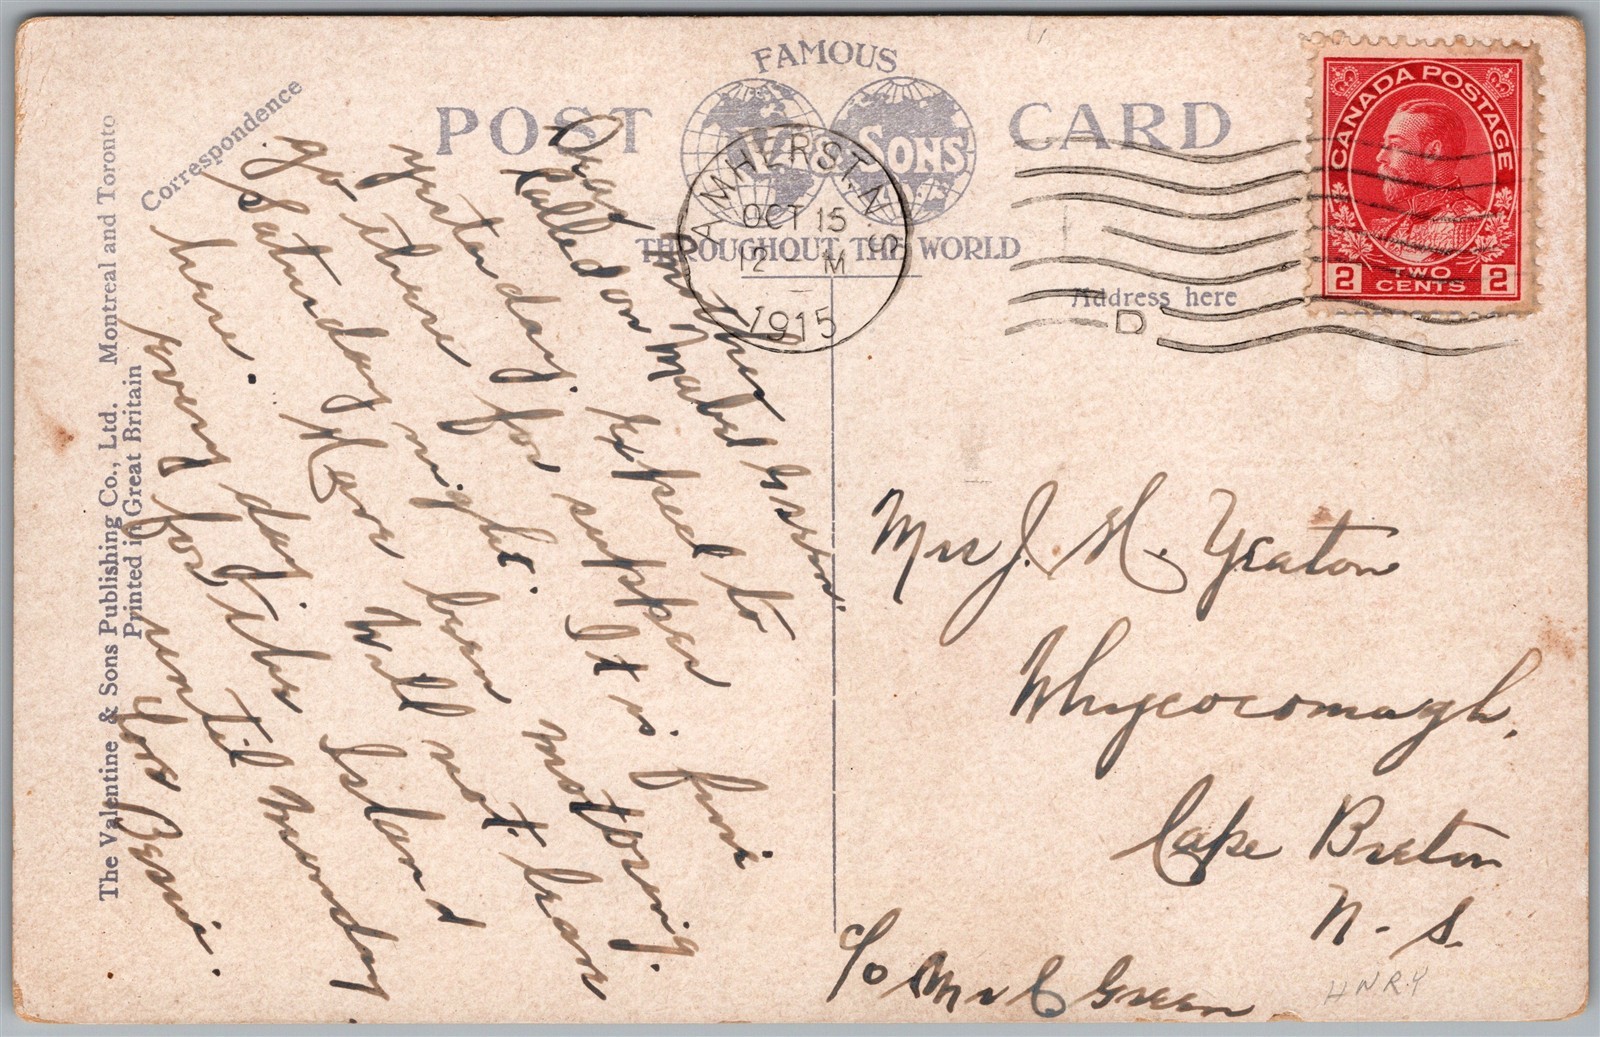 FAMOUS
POST CARD
& SONS
THROUGHOUT THE WORLD
AMHERST, N.S.
OCT 15
12 M
1915
D
CANADA POSTAGE
2 TWO CENTS 2
Correspondence
Address here
The Valentine & Sons Publishing Co., Ltd. Montreal and Toronto
Printed in Great Britain
Dear Mother
Called on Mabel Green
yesterday. to
go there for supper
Saturday night. It is fine
here. Have been motoring.
every day. Will not leave
for the Island
until Monday
Love Bessie.
Mrs J. H. Yeaton
Whycocomagh,
Cape Breton
N. S.
c/o Mrs C Green
HNRY